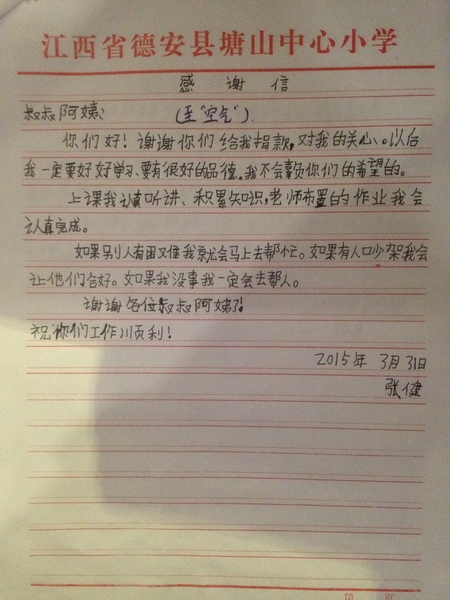 江西省德安县塘山中心小学
感谢信
叔叔阿姨:
(至"空气")
你们好!谢谢你们给我捐款,对我的关心。以后
我一定要好好学习、要有很好的品德。我不会辜负你们的希望的。
上课我认真听讲、积累知识,老师布置的作业我会
认真完成。
如果别人有困难我就会马上去帮忙。如果有人口少架我会
让他们合好。如果我没事我一定会去帮人。
谢谢各位叔叔阿姨了!
祝你们工作顺利!
2015年 3月31日
张健